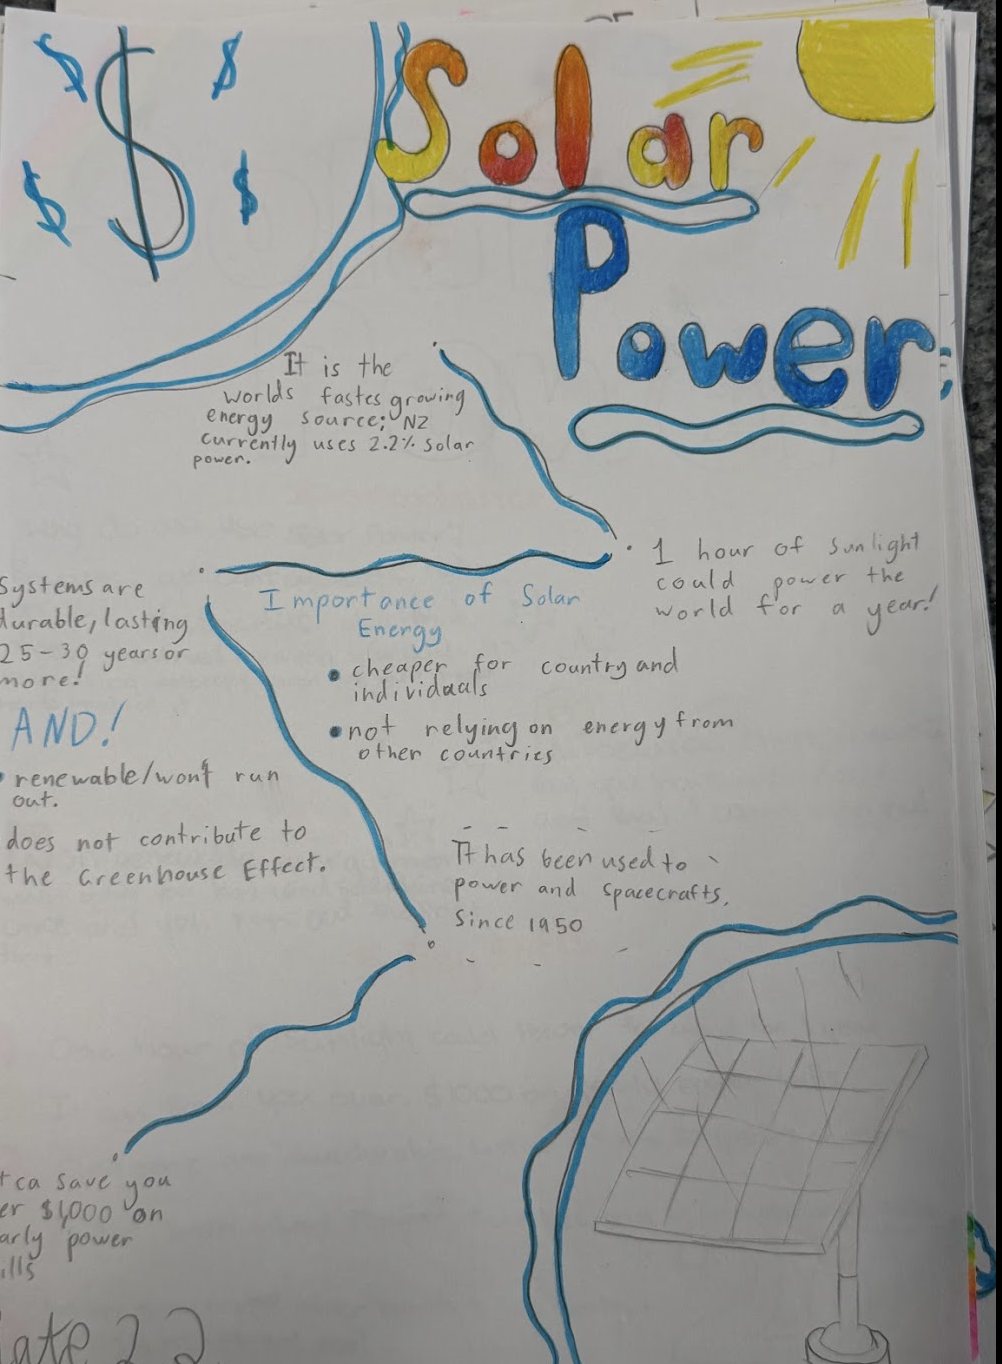 Solar
Power
It is the
worlds fastes growing
energy source; NZ
currently uses 2.2% solar
power.
1 hour of sunlight
could power the
world for a year!
Systems are
durable, lasting
25-30 years or
more!
AND!
renewable/won't run
out.
does not contribute to
the Greenhouse Effect.
Importance of Solar
Energy
cheaper for country and
individuals
not relying on energy from
other countries
It has been used to
power and spacecrafts,
since 1950
ca save you
$1,000 on
power